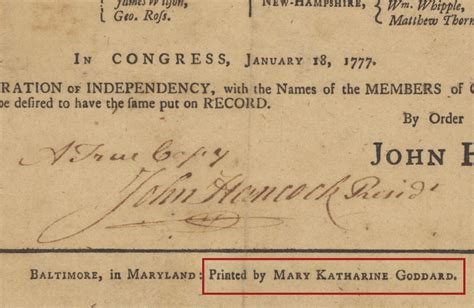 James Wilson,
Geo. Ross.
NEW-HAMPSHIRE,
Wm. Whipple,
Matthew Thorn
IN CONGRESS, JANUARY 18, 1777.
RATION OF INDEPENDENCY, with the Names of the MEMBERS of
be desired to have the same put on RECORD.
By Order
A True Copy
JOHN H
John Hancock Presidt
BALTIMORE, in MARYLAND: Printed by MARY KATHARINE GODDARD.